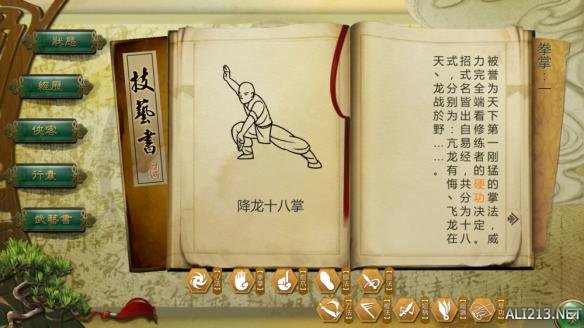 狀態
經歷
俠客
行囊
武藝書
技藝書
降龙十八掌
拳掌：一
被誉为天下第一刚猛的掌法，威
力完全端看修练者的硬功决定。
招式名皆出自易经，共分为十八
式，分别为：亢龙有悔、飞龙在
天、龙战於野……。
ALI213.NET